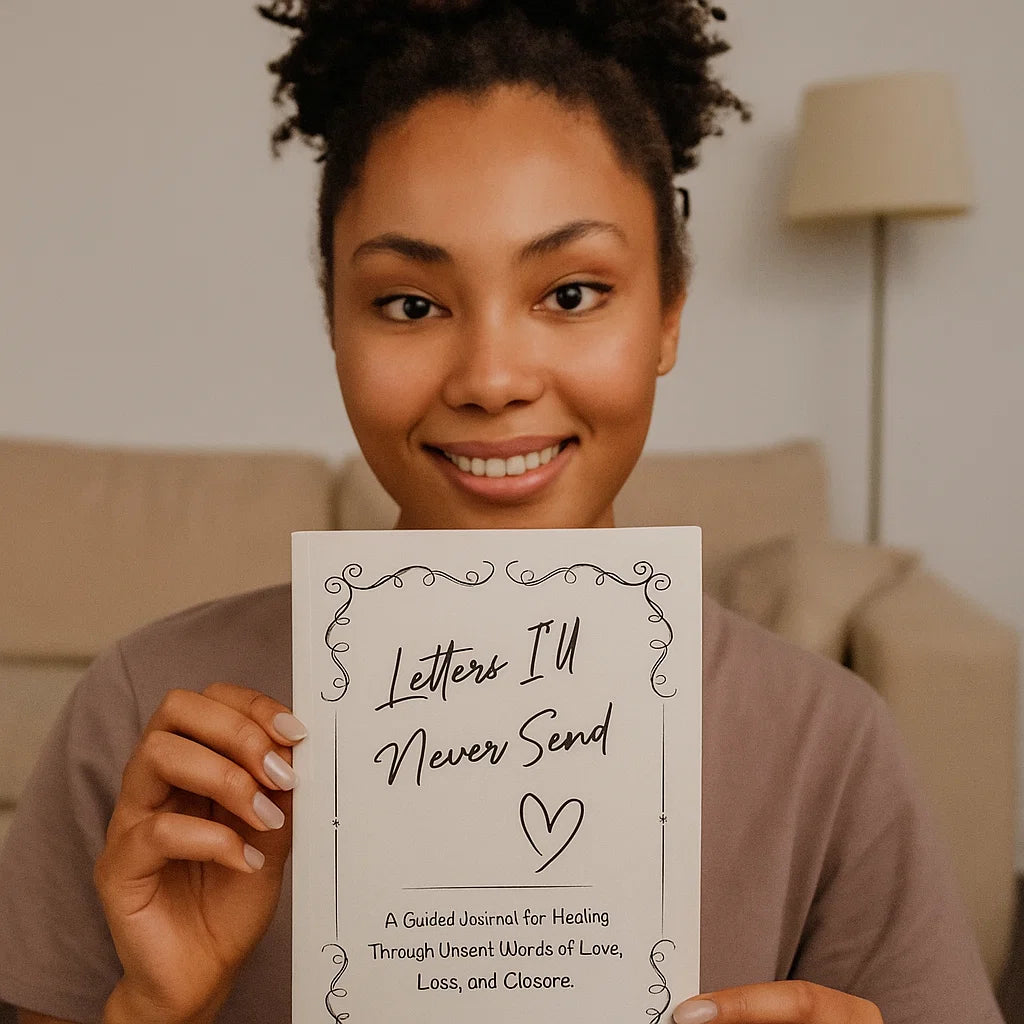 Letters I'll
Never Send
A Guided Josirnal for Healing
Through Unsent Words of Love,
Loss, and Closore.